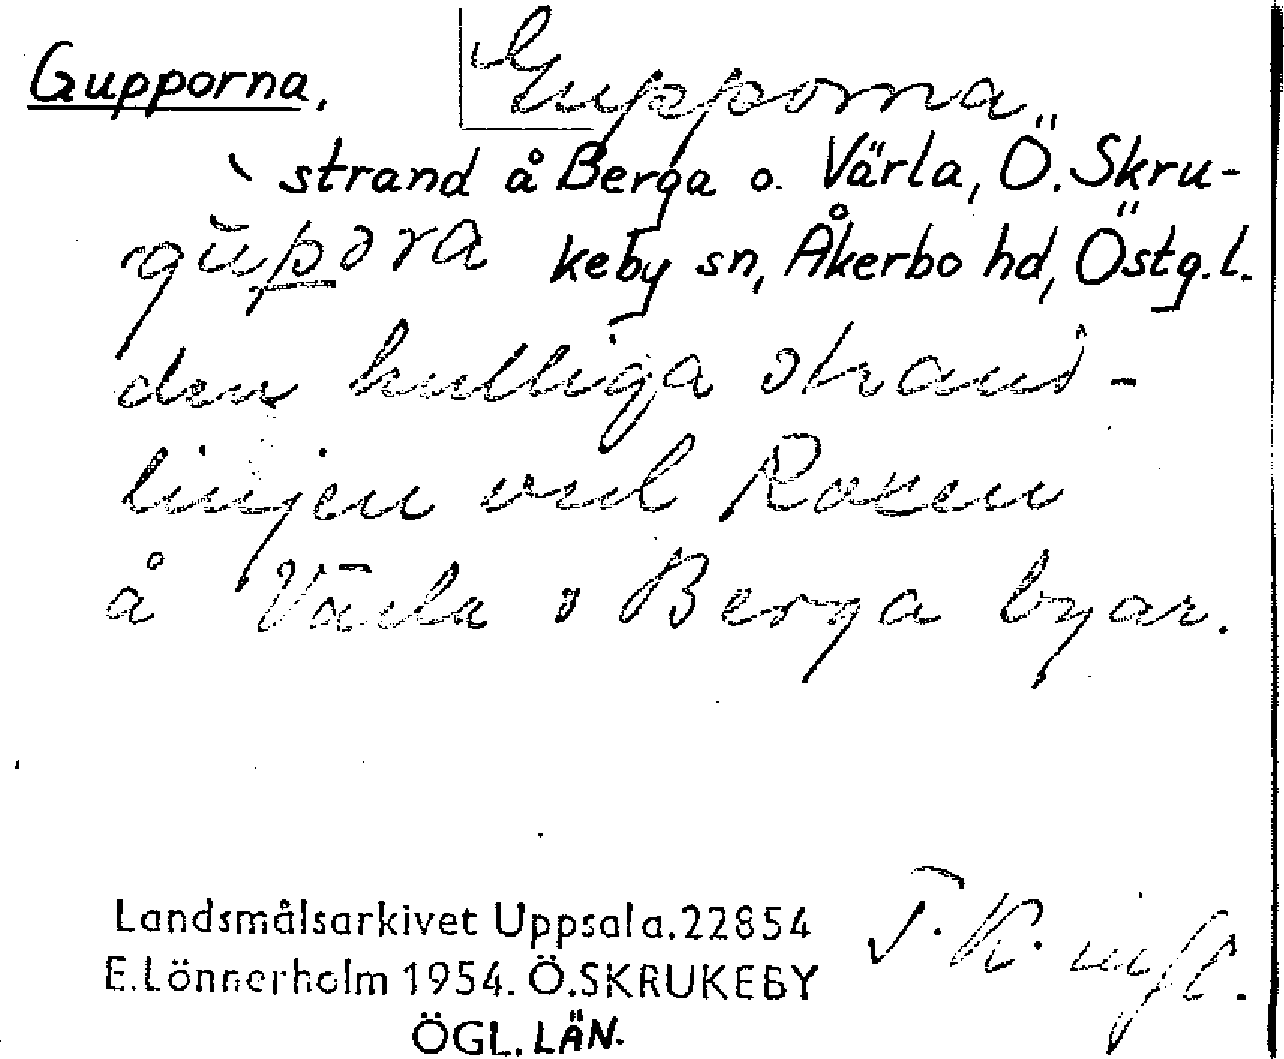 Gupporna. Gupporna
strand å Berga o. Värla, Ö. Skru-
keby sn, Åkerbo hd, Östg.l.
den kulliga strand-
linjen vid Roxen
å Värla o Berga byar.
Landsmålsarkivet Uppsala.22854
E.Lönnerholm 1954. Ö.SKRUKEBY
ÖGL. LÄN.